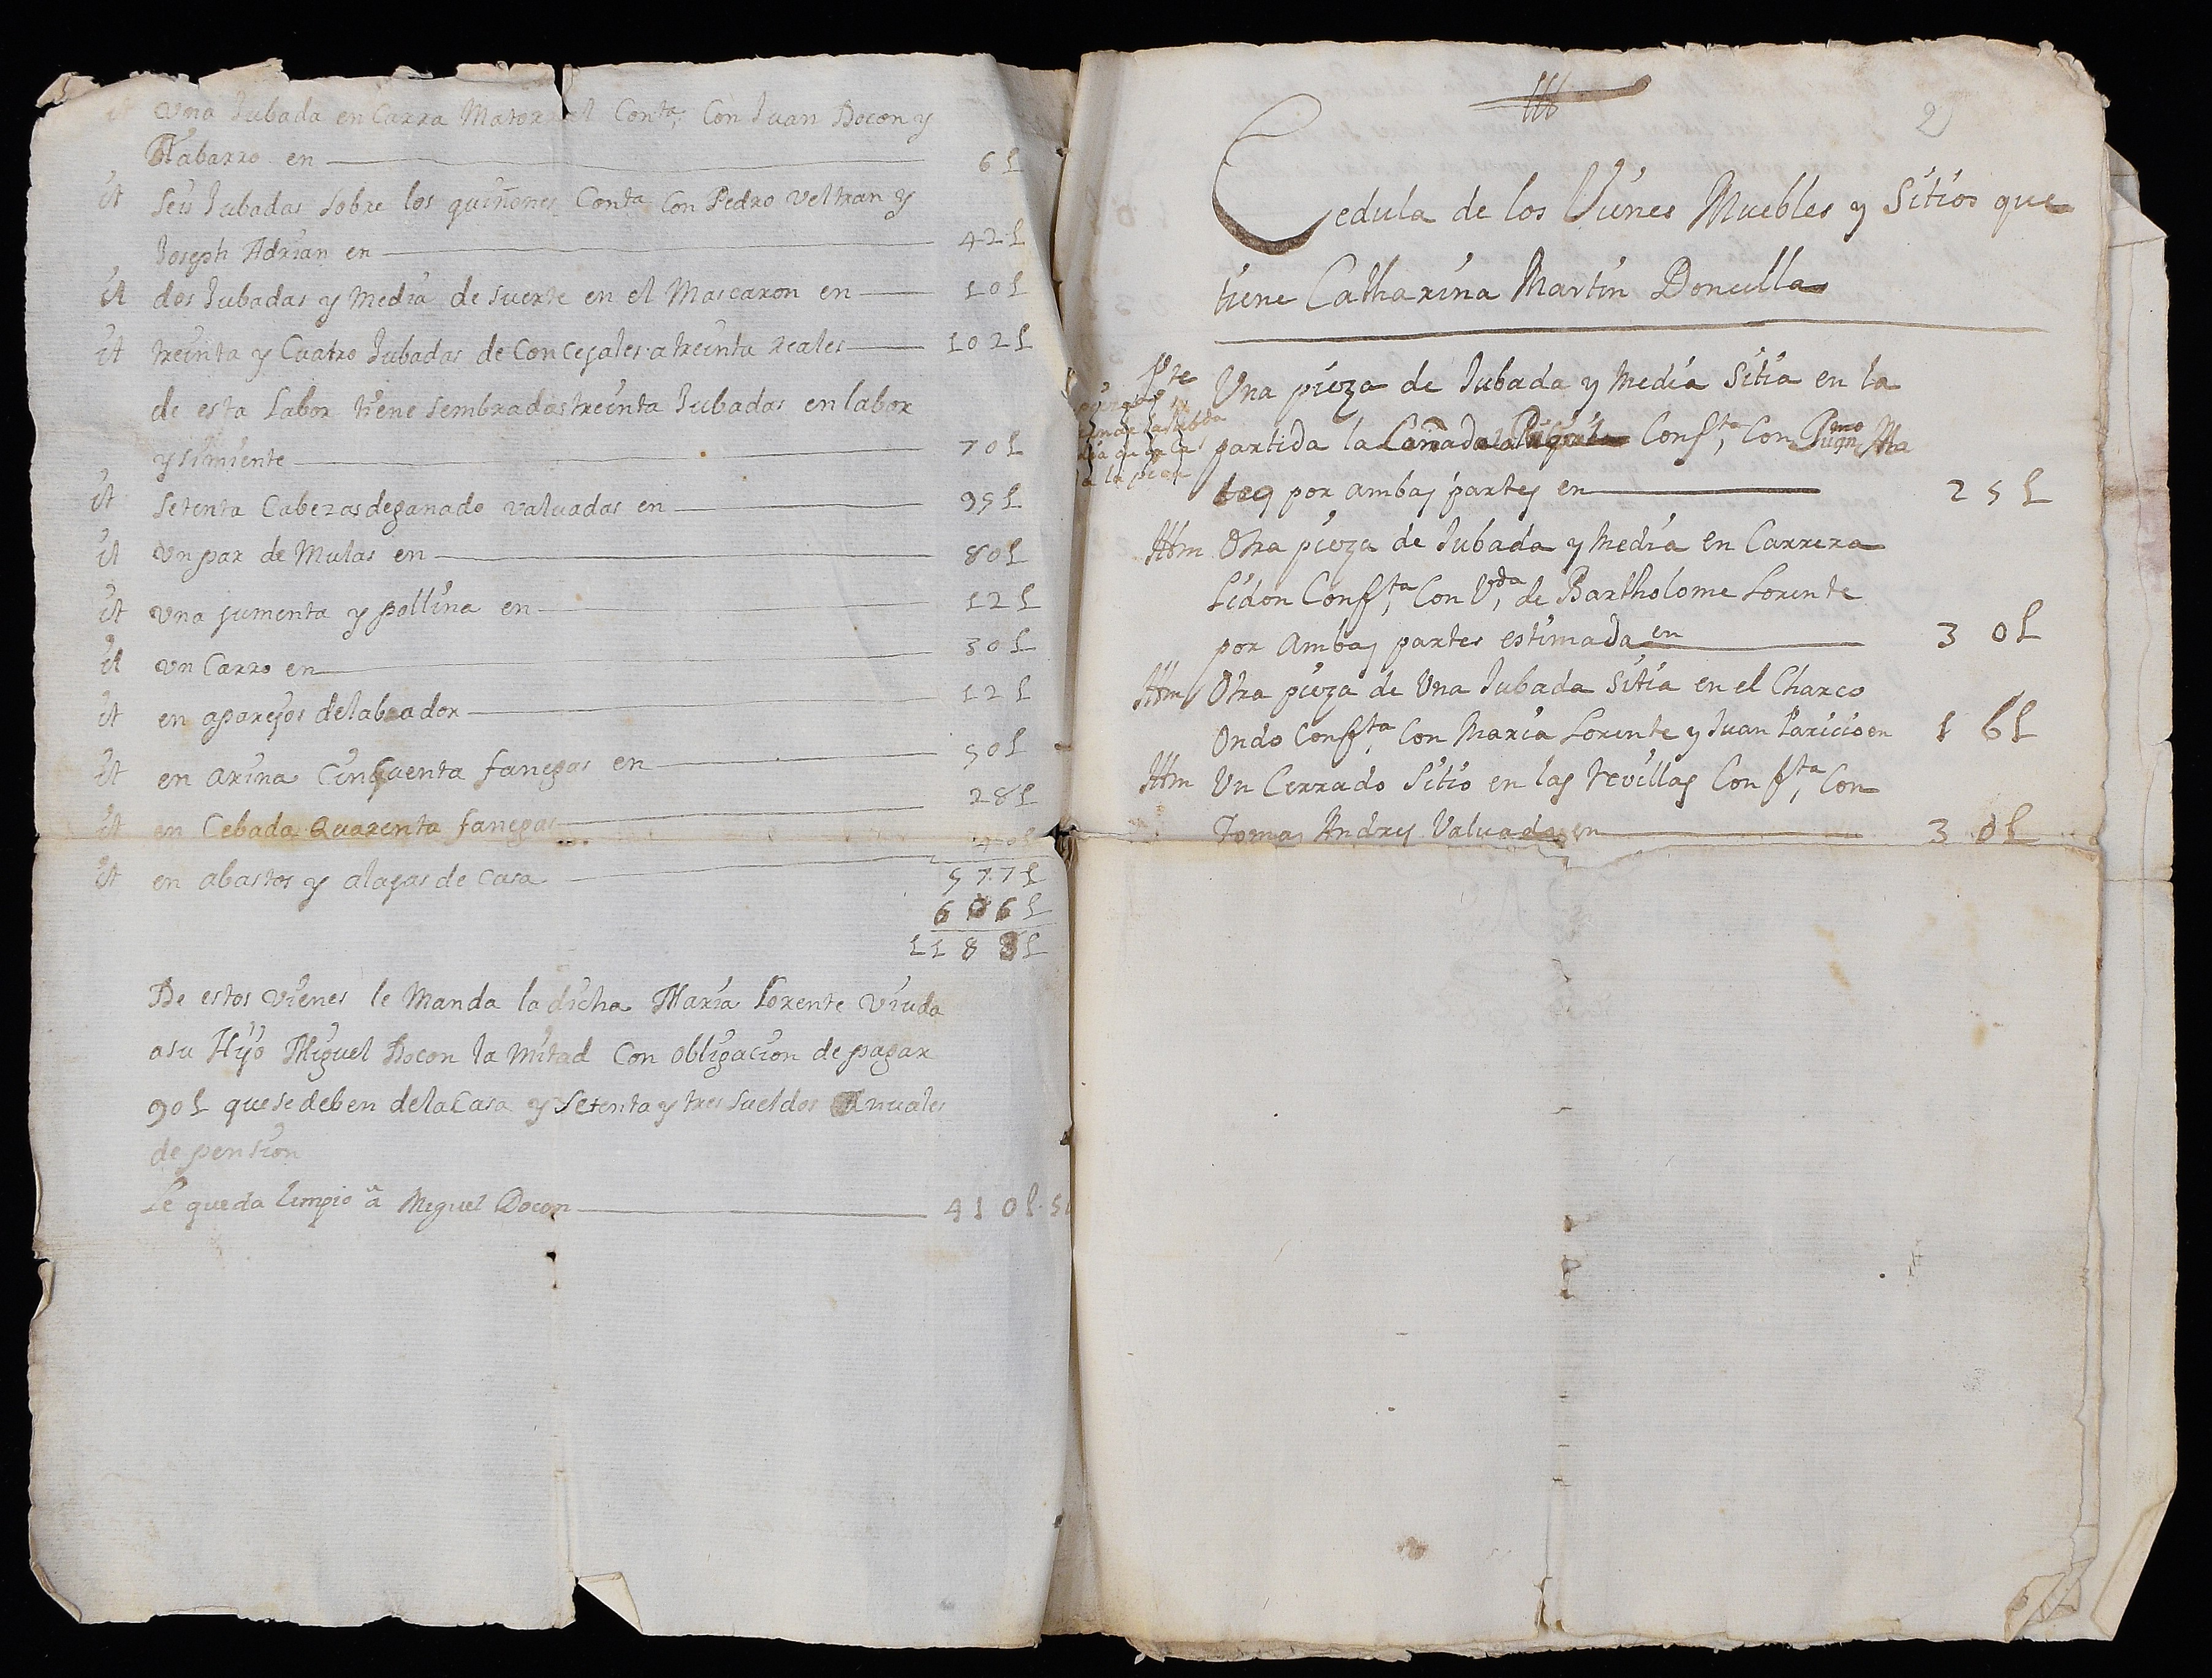 it Una Jubada en Carra Matorral Conta, Con Juan Docon y
Nabarro en 6 L
it Seis Jubadas sobre los quiñones Conta Con Pedro Veltran y
Joseph Adrian en 42 L
it dos Jubadas y Media de suerte en el Mascaron en 10 L
it treinta y Cuatro Jubadas de Concejales a treinta reales 102 L
de esta Labor tiene sembradas treinta Jubadas en labor
y simiente 70 L
it Setenta Cabezas de ganado valuadas en 95 L
it Un par de Mulas en 80 L
it Una jumenta y pollina en 12 L
it Un Carro en 30 L
it en aparejos de labrador 12 L
it en arina Cinquenta fanegas en 50 L
it en Cebada Quarenta fanegas 28 L
it en abastos y alajas de Casa 40 L
577 L
606 L
1183 L
De estos vienes le Manda la dicha Maria Lorente Viuda
a su Hijo Miguel Docon la Mitad Con obligacion de pagar
90 L que se deben de la Casa y Setenta y tres sueldos Anuales
de pension
Le queda limpio â Miguel Docon 410 L 5
2
Cedula de los Vienes Muebles y Sitios que
tiene Catharina Martin Doncella
Pte Una pieza de Jubada y Media Sitia en la
partida la Cañada Confta, Con
por ambas partes en 25 L
a la pieza
Ittm Otra pieza de Jubada y Media en Carrera
Lidon Confta, Con Vda, de Bartholome Lorente
por Ambas partes estimada en 30 L
Ittm Otra pieza de Una Jubada Sitia en el Charco
Ondo Confta, Con Maria Lorente y Juan Paricio en 16 L
Ittm Un Cerrado Sitio en las revillas Confta, Con
Tomas Andres Valuado en 30 L